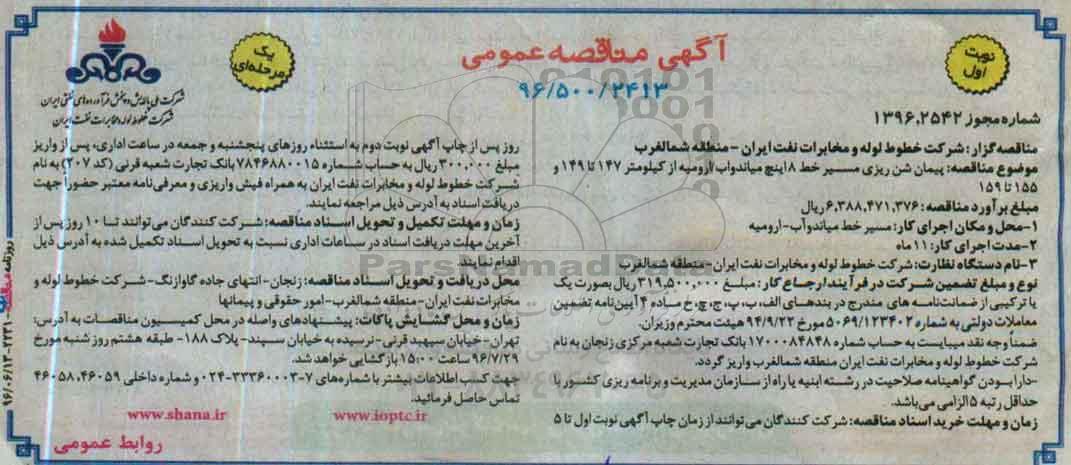 آگهی مناقصه عمومی
۹۶/۵۰۰/۲۴۱۳
نوبت
اول
یک
مرحله‌ای
شرکت ملی پالایش و پخش فرآورده‌های نفتی ایران
شرکت خطوط لوله و مخابرات نفت ایران
شماره مجوز ۱۳۹۶،۲۵۴۲
مناقصه‌گزار: شرکت خطوط لوله و مخابرات نفت ایران - منطقه شمالغرب
موضوع مناقصه: پیمان شن ریزی مسیر خط ۸ اینچ میاندوآب ارومیه از کیلومتر ۱۴۷ تا ۱۴۹ و
۱۵۵ تا ۱۵۹
مبلغ برآورد مناقصه: ۶,۳۸۸,۴۷۱,۳۷۶ ریال
۱-محل و مکان اجرای کار: مسیر خط میاندوآب-ارومیه
۲-مدت اجرای کار: ۱۱ ماه
۳-نام دستگاه نظارت: شرکت خطوط لوله و مخابرات نفت ایران-منطقه شمالغرب
نوع و مبلغ تضمین شرکت در فرآیند ارجاع کار: مبلغ ۳۱۹,۵۰۰,۰۰۰ ریال بصورت یک
یا ترکیبی از ضمانت‌نامه های مندرج در بندهای الف، ب، پ، ج، چ، خ ماده ۴ آیین‌نامه تضمین
معاملات دولتی به شماره ۵۰۶۹/۱۲۳۴۰۲ مورخ ۹۴/۹/۲۲ هیئت محترم وزیران.
ضمناً وجه نقد میبایست به حساب شماره ۱۷۰۰۰۸۴۸۴۸ بانک تجارت شعبه مرکزی زنجان به نام
شرکت خطوط لوله و مخابرات نفت ایران منطقه شمالغرب واریز گردد.
-دارا بودن گواهینامه صلاحیت در رشته ابنیه یا راه از سازمان مدیریت و برنامه ریزی کشور با
حداقل رتبه ۵ الزامی می‌باشد.
زمان و مهلت خرید اسناد مناقصه: شرکت کنندگان می‌توانند از زمان چاپ آگهی نوبت اول تا ۵
روز پس از چاپ آگهی نوبت دوم به استثناء روزهای پنجشنبه و جمعه در ساعت اداری، پس از واریز
مبلغ ۳۰۰,۰۰۰ ریال به حساب شماره ۷۸۴۶۸۸۰۰۱۵ بانک تجارت شعبه قرنی (کد ۲۰۷) به نام
شرکت خطوط لوله و مخابرات نفت ایران به همراه فیش واریزی و معرفی‌نامه معتبر حضوراً جهت
دریافت اسناد به آدرس ذیل مراجعه نمایند.
زمان و مهلت تکمیل و تحویل اسناد مناقصه: شرکت کنندگان می‌توانند تا ۱۰ روز پس از
آخرین مهلت دریافت اسناد در ساعات اداری نسبت به تحویل اسناد تکمیل شده به آدرس ذیل
اقدام نمایند.
محل دریافت و تحویل اسناد مناقصه: زنجان-انتهای جاده گاوازنگ-شرکت خطوط لوله و
مخابرات نفت ایران-منطقه شمالغرب-امور حقوقی و پیمانها
زمان و محل گشایش پاکات: پیشنهادهای واصله در محل کمیسیون مناقصات به آدرس:
تهران-خیابان سپهبد قرنی-نرسیده به خیابان سپند- پلاک ۱۸۸- طبقه هشتم روز شنبه مورخ
۹۶/۷/۲۹ ساعت ۱۵:۰۰ بازگشایی خواهد شد.
جهت کسب اطلاعات بیشتر با شماره‌های ۷-۳۳۳۶۰۰۰۳-۰۲۴ و شماره داخلی ۴۶۰۵۸،۴۶۰۵۹
تماس حاصل فرمائید.
www.shana.ir www.ioptc.ir
روابط عمومی
ParsNamadData